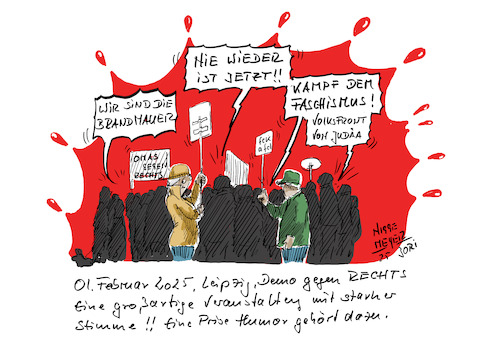 NIE WIEDER
IST JETZT!!
KAMPF DEM
FASCHISMUS!
VOLKSFRONT
VON JUDÄA
WIR SIND DIE
BRANDMAUER
OMAS
GEGEN
RECHTS
FCK
AFD
NIGGE
MEYER
25 JORI
01. Februar 2025, Leipzig, Demo gegen RECHTS
Eine großartige Veranstaltung mit starker
Stimme!! Eine Prise Humor gehört dazu.